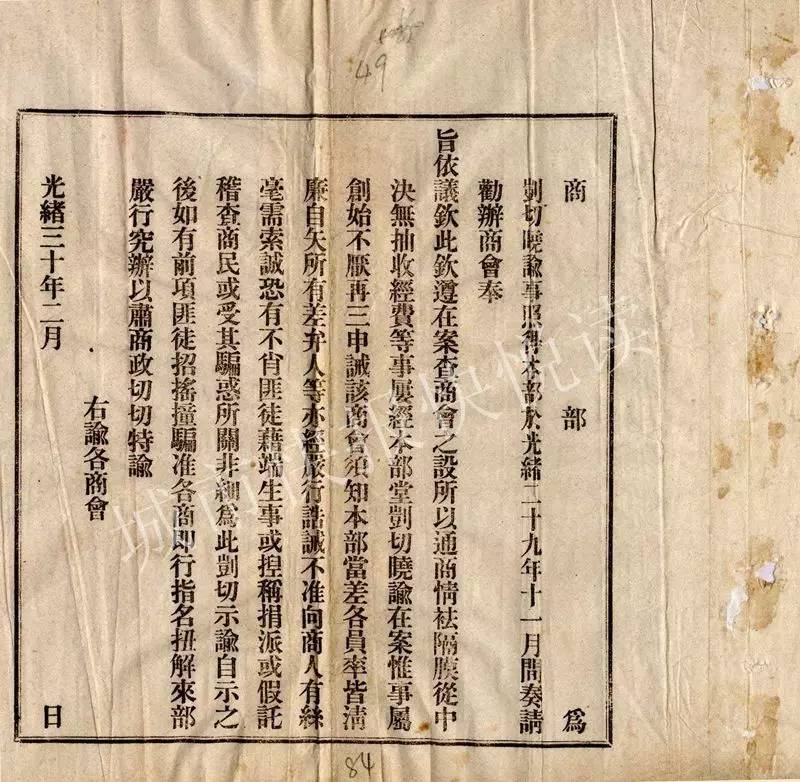 49
商部為
剴切曉諭事照得本部於光緒二十九年十一月間奏請
勸辦商會奉
旨依議欽此欽遵在案查商會之設所以通商情祛隔膜從中
決無抽收經費等事屢經本部堂剴切曉諭在案惟事屬
創始不厭再三申誡該商會須知本部當差各員率皆清
廉自矢所有差弁人等亦經嚴行誥誡不准向商人有絲
毫需索誠恐有不肖匪徒藉端生事或揑稱捐派或假託
稽查商民或受其騙惑所關非細為此剴切示諭自示之
後如有前項匪徒招搖撞騙准各商即行指名扭解來部
嚴行究辦以肅商政切切特諭
右諭各商會
光緒三十年二月日
84